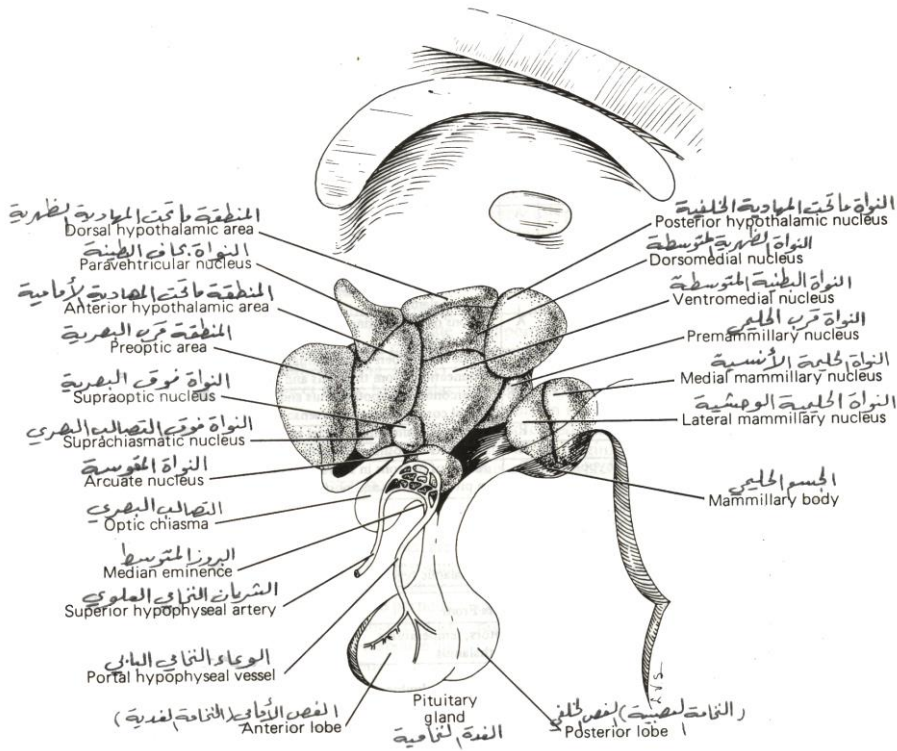 المنطقة ماتحت المهادية الظهرية
Dorsal hypothalamic area
النواة بجاف البطينة
Paraventricular nucleus
المنطقة ماتحت المهادية الأمامية
Anterior hypothalamic area
المنطقة قرب البصرية
Preoptic area
النواة فوق البصرية
Supraoptic nucleus
النواة فوق التصالب البصري
Suprachiasmatic nucleus
النواة المقوسة
Arcuate nucleus
التصالب البصري
Optic chiasma
البروز المتوسط
Median eminence
الشريان النخامي العلوي
Superior hypophyseal artery
الوعاء النخامي البابي
Portal hypophyseal vessel
الفص الأمامي (النخامة الغدية)
Anterior lobe
Pituitary
gland
الغدة النخامية
(النخامة العصبية) الفص الخلفي
Posterior lobe
النواة ماتحت المهادية الخلفية
Posterior hypothalamic nucleus
النواة الظهرية المتوسطة
Dorsomedial nucleus
النواة البطنية المتوسطة
Ventromedial nucleus
النواة قرب الحليمي
Premammillary nucleus
النواة الحليمية الأنسية
Medial mammillary nucleus
النواة الحليمية الوحشية
Lateral mammillary nucleus
الجسم الحليمي
Mammillary body